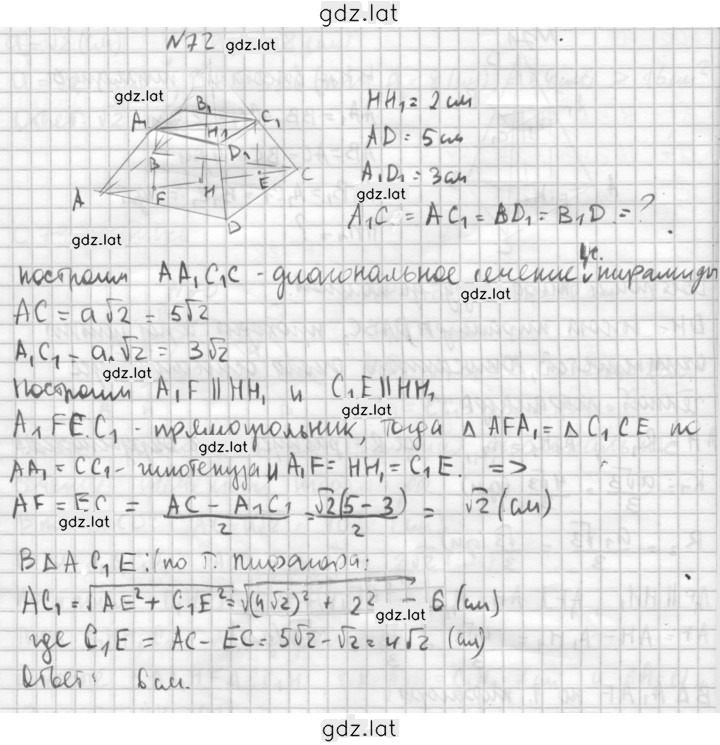 gdz.lat
N72 gdz.lat
gdz.lat
A₁ B₁ C₁ H₁ D₁
B F H E C
A D
HH₁ = 2 см
AD = 5 см
A₁D₁ = 3 см
gdz.lat
A₁C = AC₁ = BD₁ = B₁D = ?
gdz.lat
построим AA₁C₁C - диагональное сечение ус. пирамиды
gdz.lat
AC = a√2 = 5√2
A₁C₁ = a₁√2 = 3√2
gdz.lat
Построим A₁F || HH₁ и C₁E || HH₁
gdz.lat
A₁FEC₁ - прямоугольник, тогда △ AFA₁ = △ C₁CE по
gdz.lat
AA₁ = CC₁ - гипотенуза и A₁F = HH₁ = C₁E. =>
AF = EC = (AC - A₁C₁)/2 = √2(5-3)/2 = √2 (см)
gdz.lat
В △ AC₁E: (по т. Пифагора:
AC₁ = √AE² + C₁E² = √(4√2)² + 2² = 6 (см)
gdz.lat
где C₁E = AC - EC = 5√2 - √2 = 4√2 (см)
Ответ: 6 см.
gdz.lat